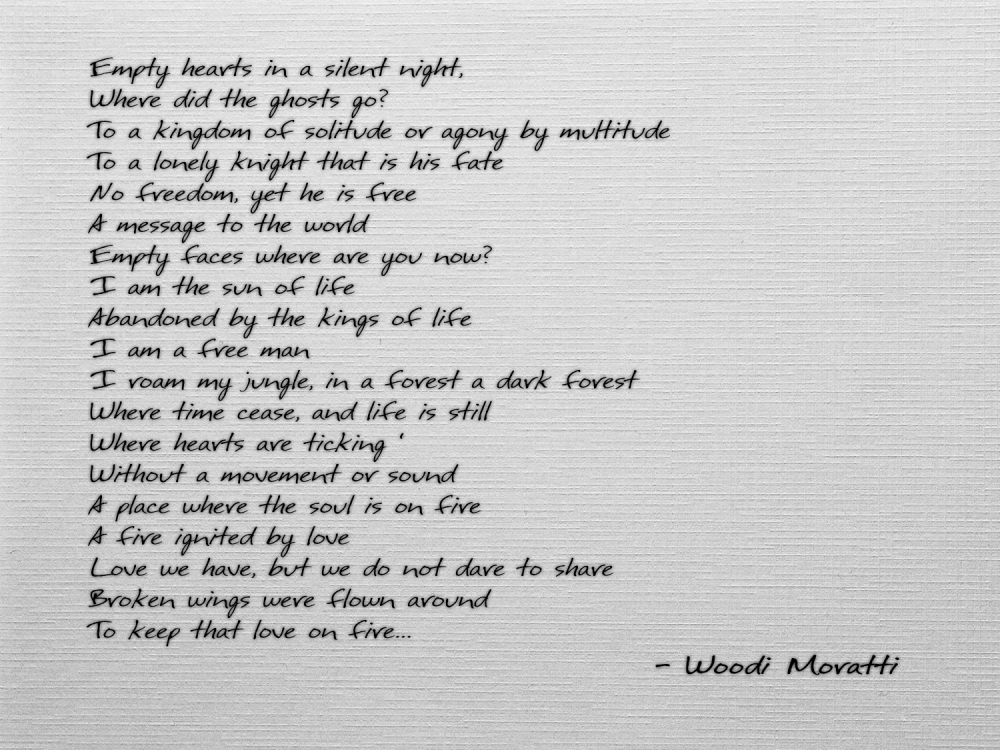 Empty hearts in a silent night,
Where did the ghosts go?
To a kingdom of solitude or agony by multitude
To a lonely knight that is his fate
No freedom, yet he is free
A message to the world
Empty faces where are you now?
I am the sun of life
Abandoned by the kings of life
I am a free man
I roam my jungle, in a forest a dark forest
Where time cease, and life is still
Where hearts are ticking '
Without a movement or sound
A place where the soul is on fire
A fire ignited by love
Love we have, but we do not dare to share
Broken wings were flown around
To keep that love on fire...
- Woodi Moratti